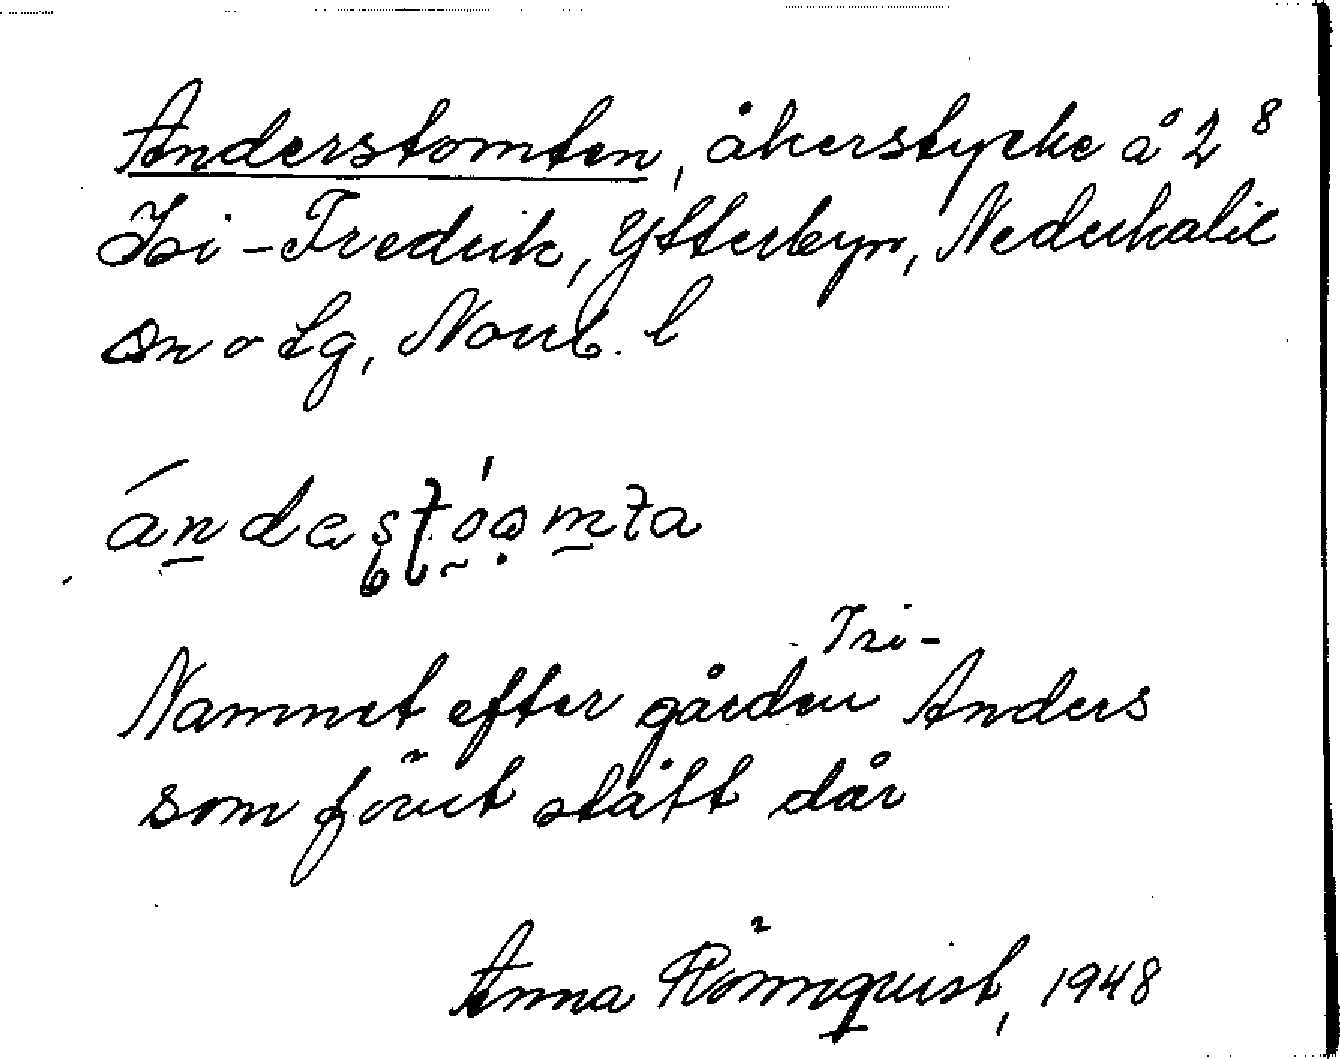 Anderstomten, åkerstycke å 2⁸
Isi-Fredrik, Ytterbyn, Nederkalix
sn o tg, Norrb. l
ándaʂʈóo̩mta
Tri-
Namnet efter gården Anders
som förut stått där
Anna Rönnquist, 1948